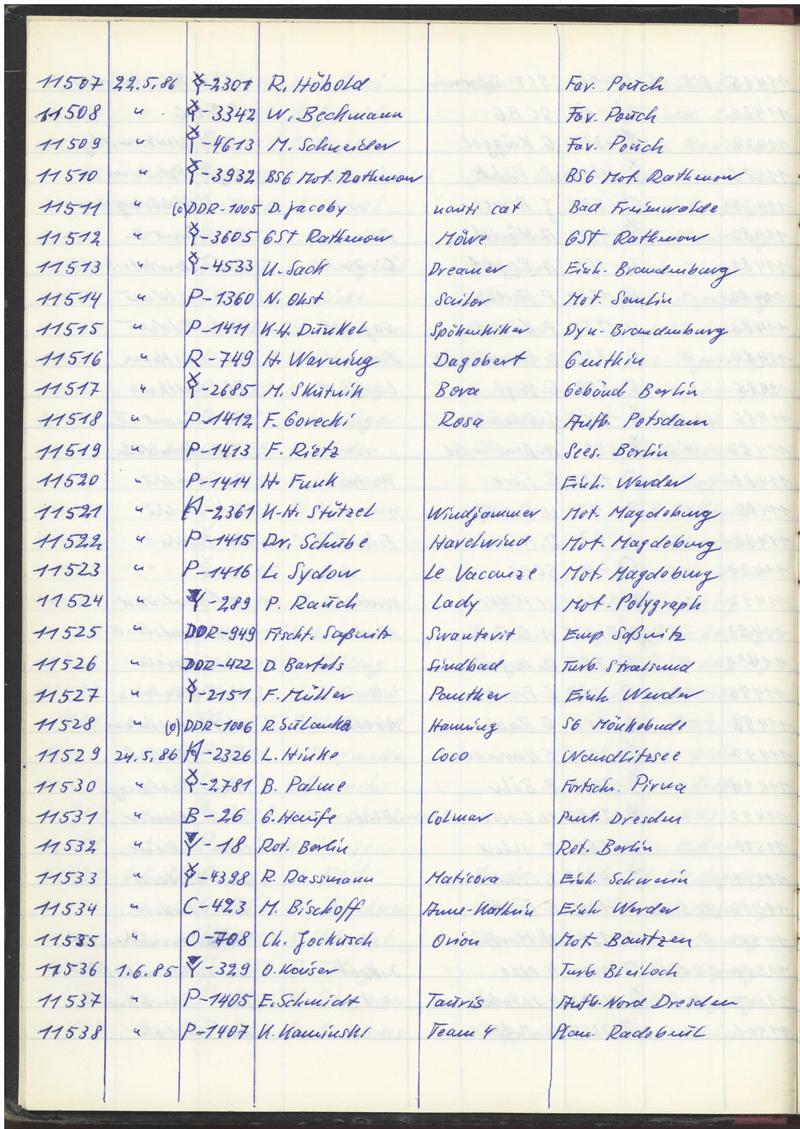 11507 22.5.86 -2301 R. Höbold Fav. Pouch
11508 " -3342 W. Beckmann Fav. Pouch
11509 " -4613 M. Schneider Fav. Pouch
11510 " -3932 BSG Mot. Rathenow BSG Mot. Rathenow
11511 " (o) DDR-1005 D. Jacoby nauti cat Bad Freienwalde
11512 " -3605 GST Rathenow Möwe GST Rathenow
11513 " -4533 U. Sach Dreamer Einh. Brandenburg
11514 " P-1360 N. Obst Sailor Mot. Semlin
11515 " P-1411 K-H. Dunkel Spökenkiker Dyn. Brandenburg
11516 " R-749 H. Warning Dagobert Genthin
11517 " -2685 M. Skutnik Bora Gebäud Berlin
11518 " P-1412 F. Gorecki Rosa Aufb. Potsdam
11519 " P-1413 F. Rietz Sees. Berlin
11520 " P-1414 H. Funk Einh. Werder
11521 " H-2361 K-H. Stützel Windjammer Mot. Magdeburg
11522 " P-1415 Dr. Schube Havelwind Mot. Magdeburg
11523 " P-1416 L. Sydow Le Mot. Magdeburg
11524 " -289 P. Rauch Lady Mot. Polygraph
11525 " DDR-949 Fischf. Saßnitz Swantevit Emp Saßnitz
11526 " DDR-422 D. Bartels Sindbad Turb. Stralsund
11527 " -2151 F. Müller Panther Einh Werder
11528 " (o) DDR-1006 Henning SG Mönkebude
11529 24.5.86 H-2326 L. Hinke Coco Wandlitzsee
11530 " -2781 B. Palme Fortschr. Pirna
11531 " B-26 G. Haufe Colmar Dresden
11532 " -18 Rot. Berlin Rot. Berlin
11533 " -4398 R. Rassmann Maticora Einh Schwerin
11534 " C-423 M. Bischoff Anne-Kathrin Einh Werder
11535 " O-708 Ch. Jockusch Orion Mot Bautzen
11536 1.6.85 -329 O. Kaiser Turb. Bleiloch
11537 " P-1405 E. Schmidt Tauris Aufb. Nord Dresden
11538 " P-1407 K. Kaminski Team 4 Plan. Radebeul